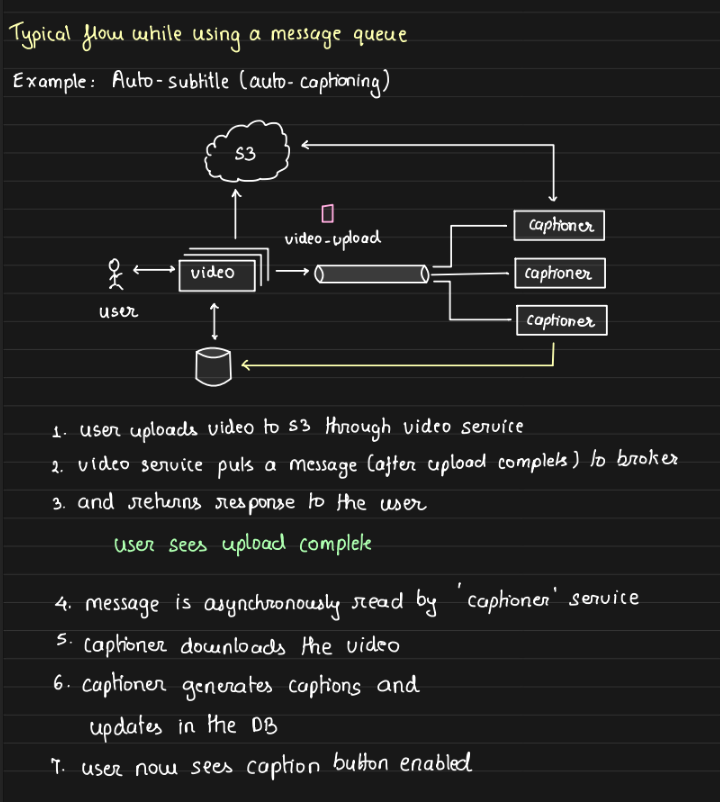 Typical flow while using a message queue
Example: Auto-subtitle (auto-captioning)
S3
video-upload
captioner
video
captioner
user
captioner
1. user uploads video to S3 through video service
2. video service puts a message (after upload completes) to broker
3. and returns response to the user
user sees upload complete
4. message is asynchronously read by 'captioner' service
5. captioner downloads the video
6. captioner generates captions and
updates in the DB
7. user now sees caption button enabled